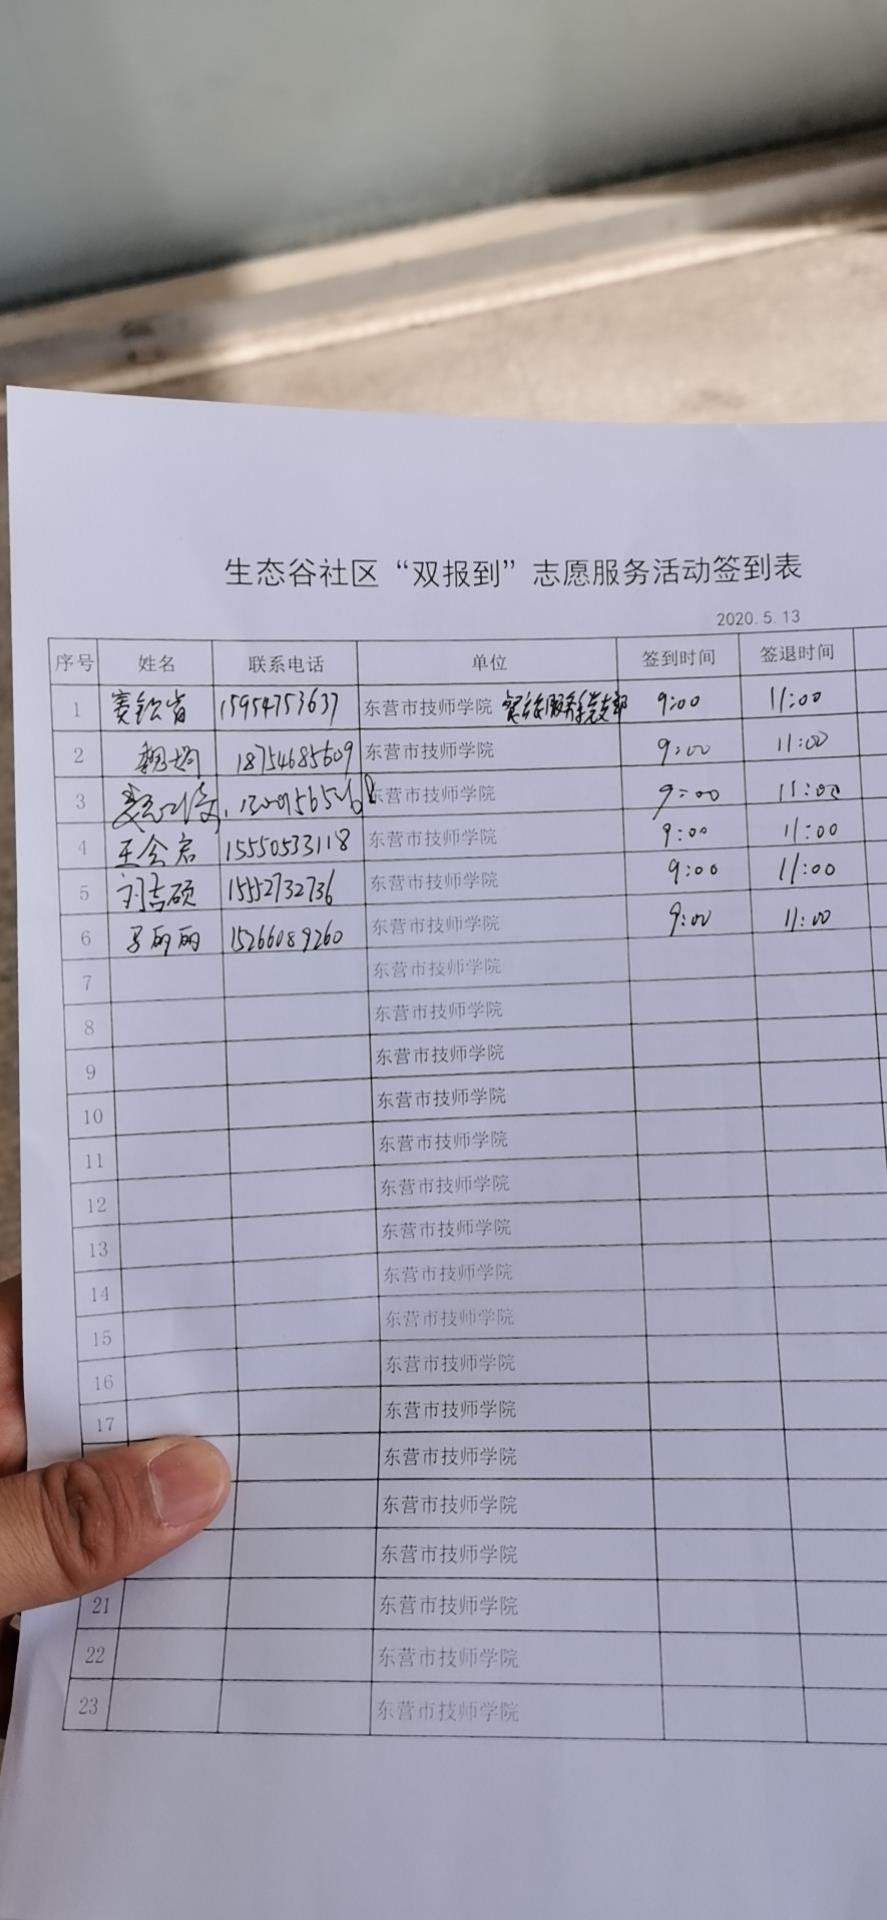 生态谷社区“双报到”志愿服务活动签到表
2020.5.13
序号 姓名 联系电话 单位 签到时间 签退时间
1 15954753637 东营市技师学院 服务系党支部 9:00 11:00
2 魏均 18754685609 东营市技师学院 9:00 11:00
3 东营市技师学院 9:00 11:00
4 王会君 15550533118 东营市技师学院 9:00 11:00
5 刘吉硕 15552732736 东营市技师学院 9:00 11:00
6 马丽丽 15266089260 东营市技师学院 9:00 11:00
7 东营市技师学院
8 东营市技师学院
9 东营市技师学院
10 东营市技师学院
11 东营市技师学院
12 东营市技师学院
13 东营市技师学院
14 东营市技师学院
15 东营市技师学院
16 东营市技师学院
17 东营市技师学院
东营市技师学院
东营市技师学院
东营市技师学院
21 东营市技师学院
22 东营市技师学院
23 东营市技师学院